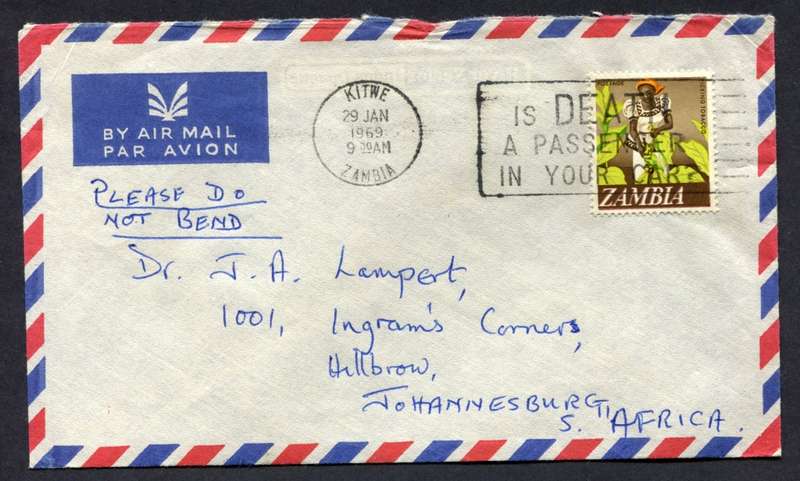 BY AIR MAIL
PAR AVION
KITWE
29 JAN
1969
9 00AM
ZAMBIA
IS DEATH
A PASSENGER
IN YOUR CAR?
POSTAGE
TOBACCO
ZAMBIA
PLEASE DO
NOT BEND
Dr. J. A. Lampert,
1001, Ingram's Corners,
Hillbrow,
JOHANNESBURG,
S. AFRICA.